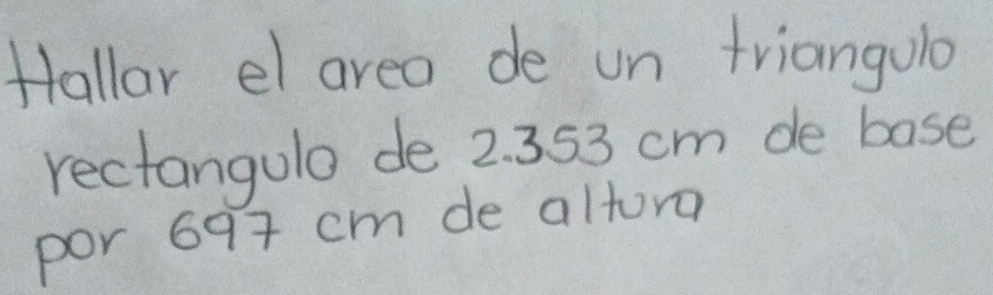 Hallar el area de un triangulo
rectangulo de 2.353 cm de base
por 697 cm de altura